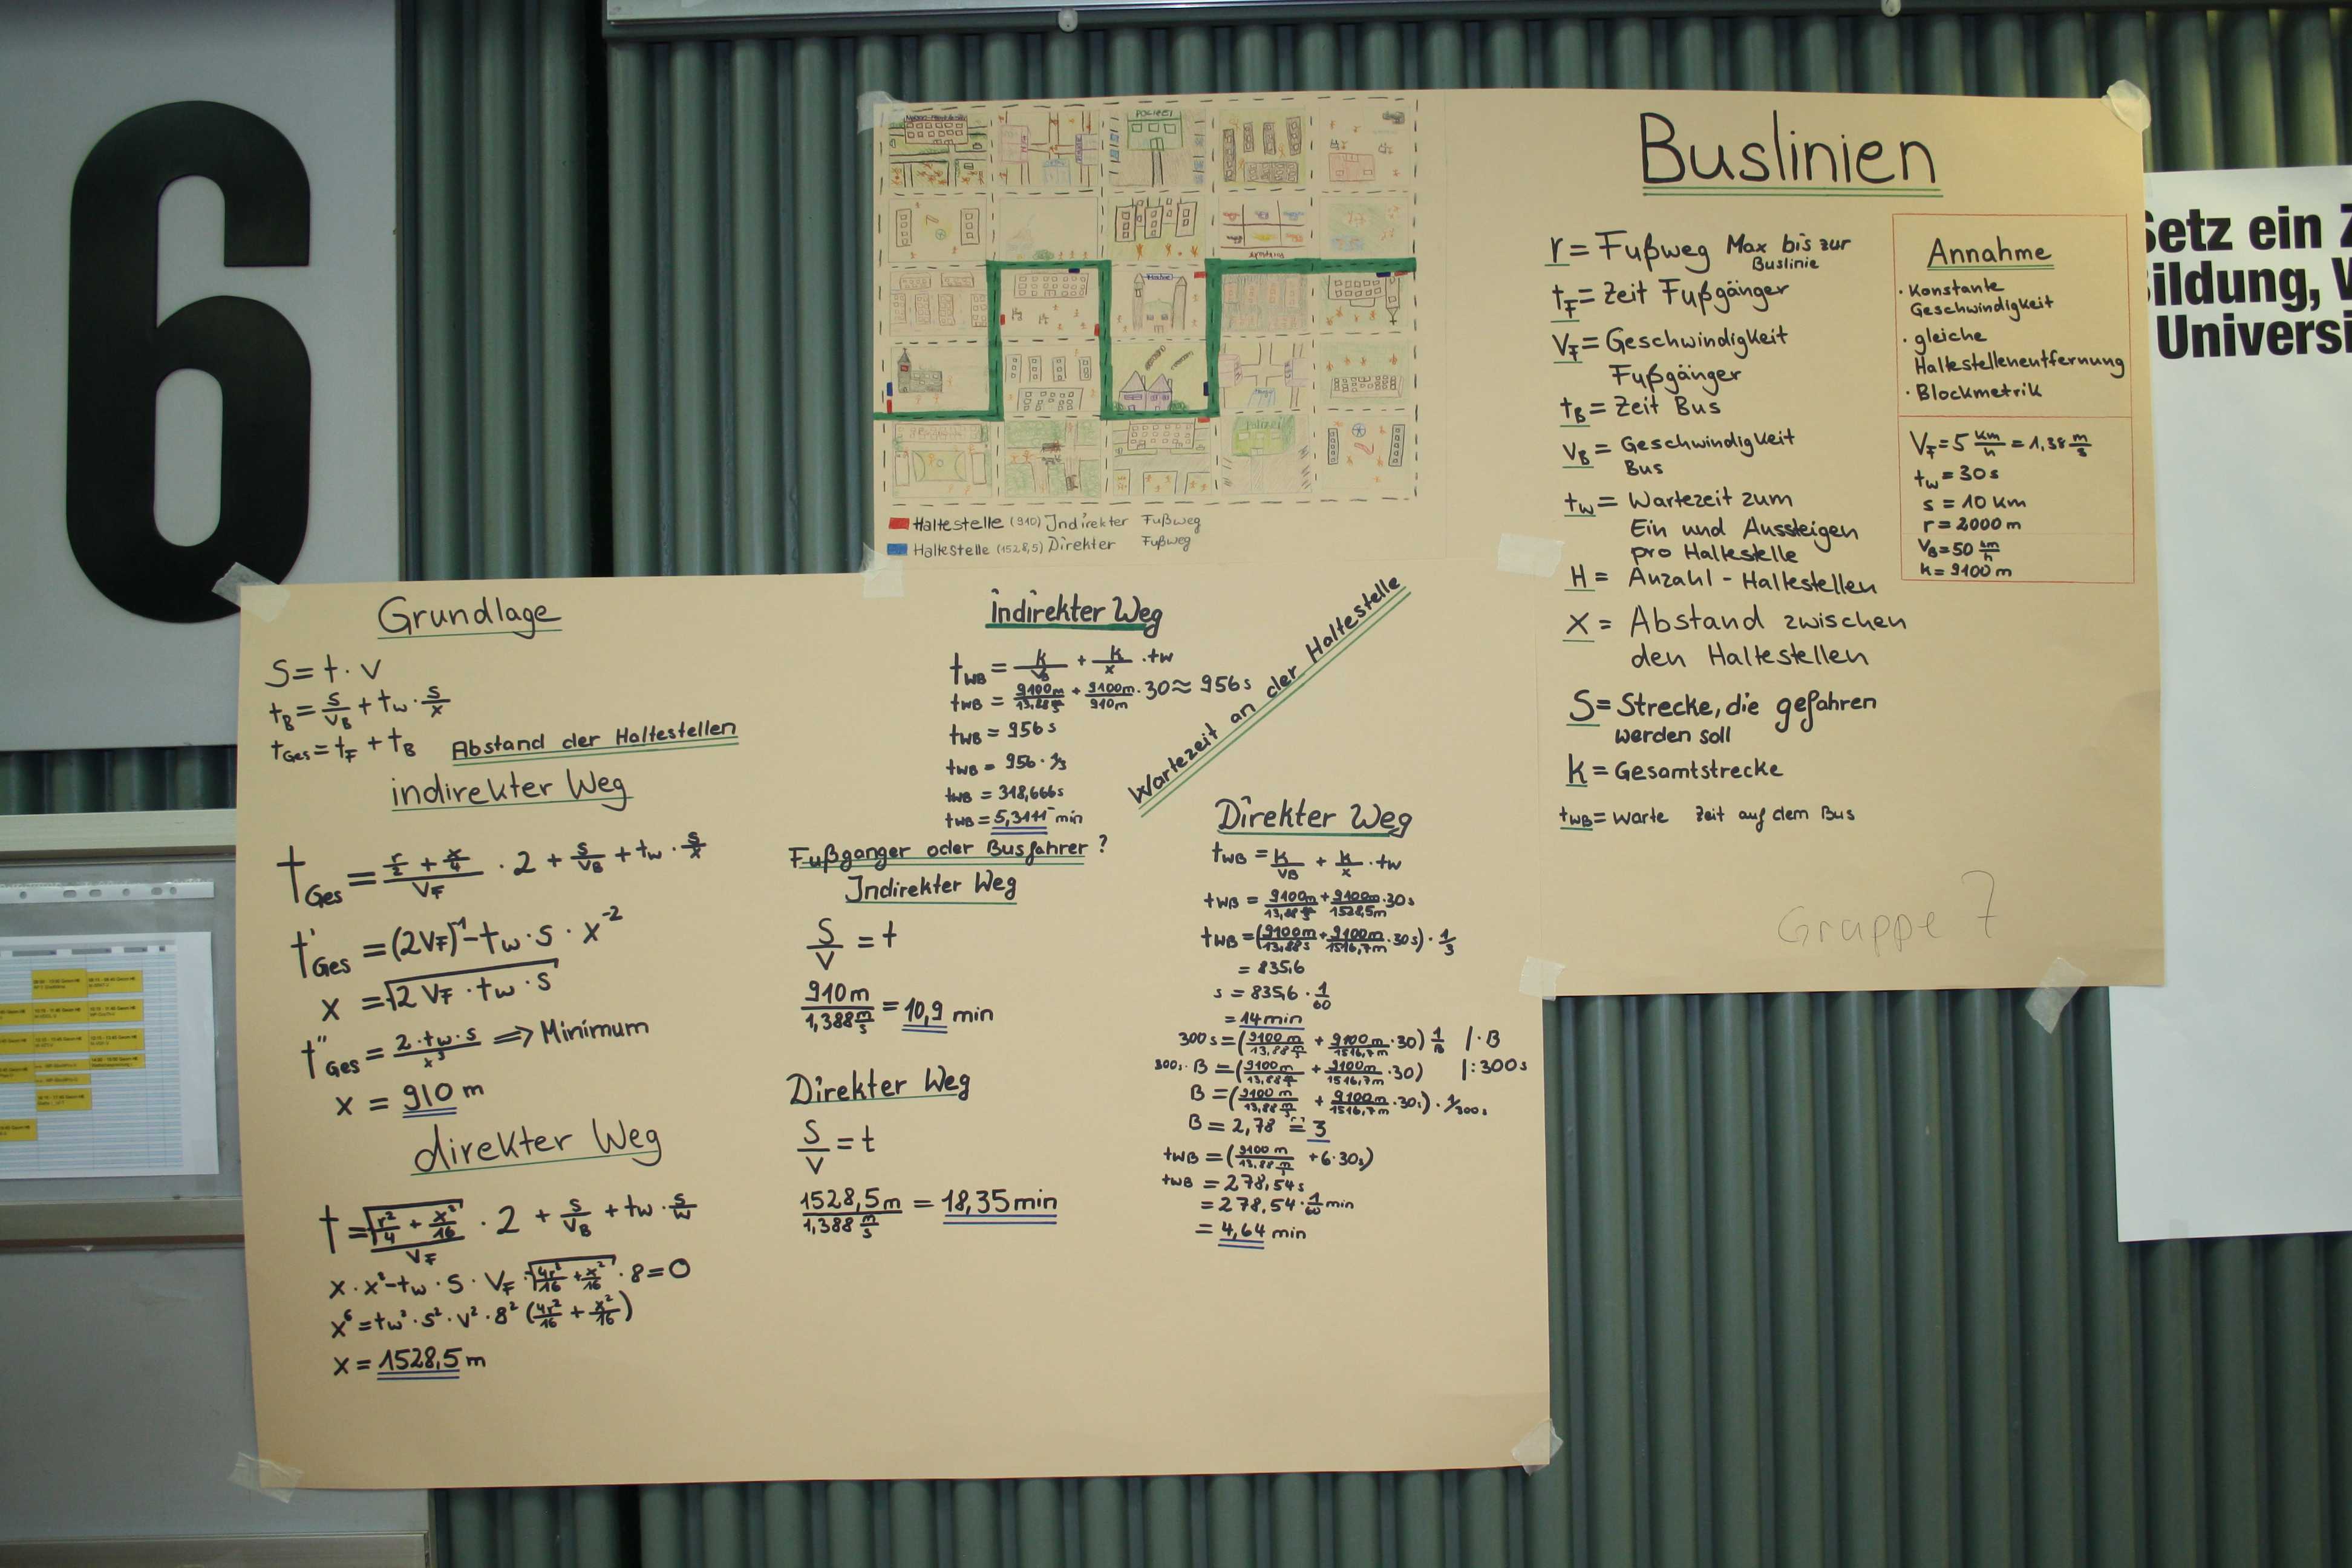 6
POLIZEI
Polizei
Haltestelle (910) Indirekter Fußweg
Haltestelle (1528,5) Direkter Fußweg
Buslinien
r = Fußweg Max bis zur
Buslinie
t_F = Zeit Fußgänger
V_F = Geschwindigkeit
Fußgänger
t_B = Zeit Bus
V_B = Geschwindigkeit
Bus
t_w = Wartezeit zum
Ein und Aussteigen
pro Haltestelle
H = Anzahl - Haltestellen
X = Abstand zwischen
den Haltestellen
S = Strecke, die gefahren
werden soll
k = Gesamtstrecke
t_WB = Warte Zeit auf dem Bus
Annahme
· Konstante
Geschwindigkeit
· gleiche
Haltestellenentfernung
· Blockmetrik
V_F = 5 km/h = 1,38 m/s
t_w = 30 s
s = 10 km
r = 2000 m
V_B = 50 km/h
k = 9100 m
Gruppe 7
Setz ein Z
Bildung, W
Universi
Grundlage
S = t · v
t_B = s/v_B + t_w · s/x
t_Ges = t_F + t_B
Abstand der Haltestellen
indirekter Weg
t_Ges = (r/2 + x/4)/V_F · 2 + s/v_B + t_w · s/x
t'_Ges = (2V_F)^-1 - t_w · s · x^-2
x = √(2 V_F · t_w · s)
t''_Ges = (2 · t_w · s)/x³ ⇒ Minimum
x = 910 m
direkter Weg
t = √(r²/4 + x²/16)/V_F · 2 + s/v_B + t_w · s/w
x · x² - t_w · s · V_F · √(4r²/16 + x²/16) · 8 = 0
x⁶ = t_w² · s² · v² · 8² (4r²/16 + x²/16)
x = 1528,5 m
indirekter Weg
t_WB = k/v_B + k/x · t_w
t_WB = 9100m/13,88 m/s + 9100m/910m · 30 ≈ 956 s
t_WB = 956 s
t_WB = 956 · 1/3
t_WB = 318,666 s
t_WB = 5,3111 min
Wartezeit an der Haltestelle
Fußganger oder Busfahrer?
Indirekter Weg
S/V = t
910 m/1,388 m/s = 10,9 min
Direkter Weg
S/V = t
1528,5 m/1,388 m/s = 18,35 min
Direkter Weg
t_WB = k/v_B + k/x · t_w
t_WB = 9100m/13,88 m/s + 9100m/1528,5m · 30 s
t_WB = (9100m/13,88s + 9100m/1516,7m · 30 s) · 1/3
= 835,6
s = 835,6 · 1/60
= 14 min
300 s = (9100 m/13,88 m/s + 9100 m/1516,7 m · 30) 1/B | · B
300 s · B = (9100 m/13,88 m/s + 9100 m/1516,7 m · 30) | : 300 s
B = (9100 m/13,88 m/s + 9100 m/1516,7 m · 30 s) · 1/300 s
B = 2,78 = 3
t_WB = (9100 m/13,88 m/s + 6 · 30 s)
t_WB = 278,54 s
= 278,54 · 1/60 min
= 4,64 min